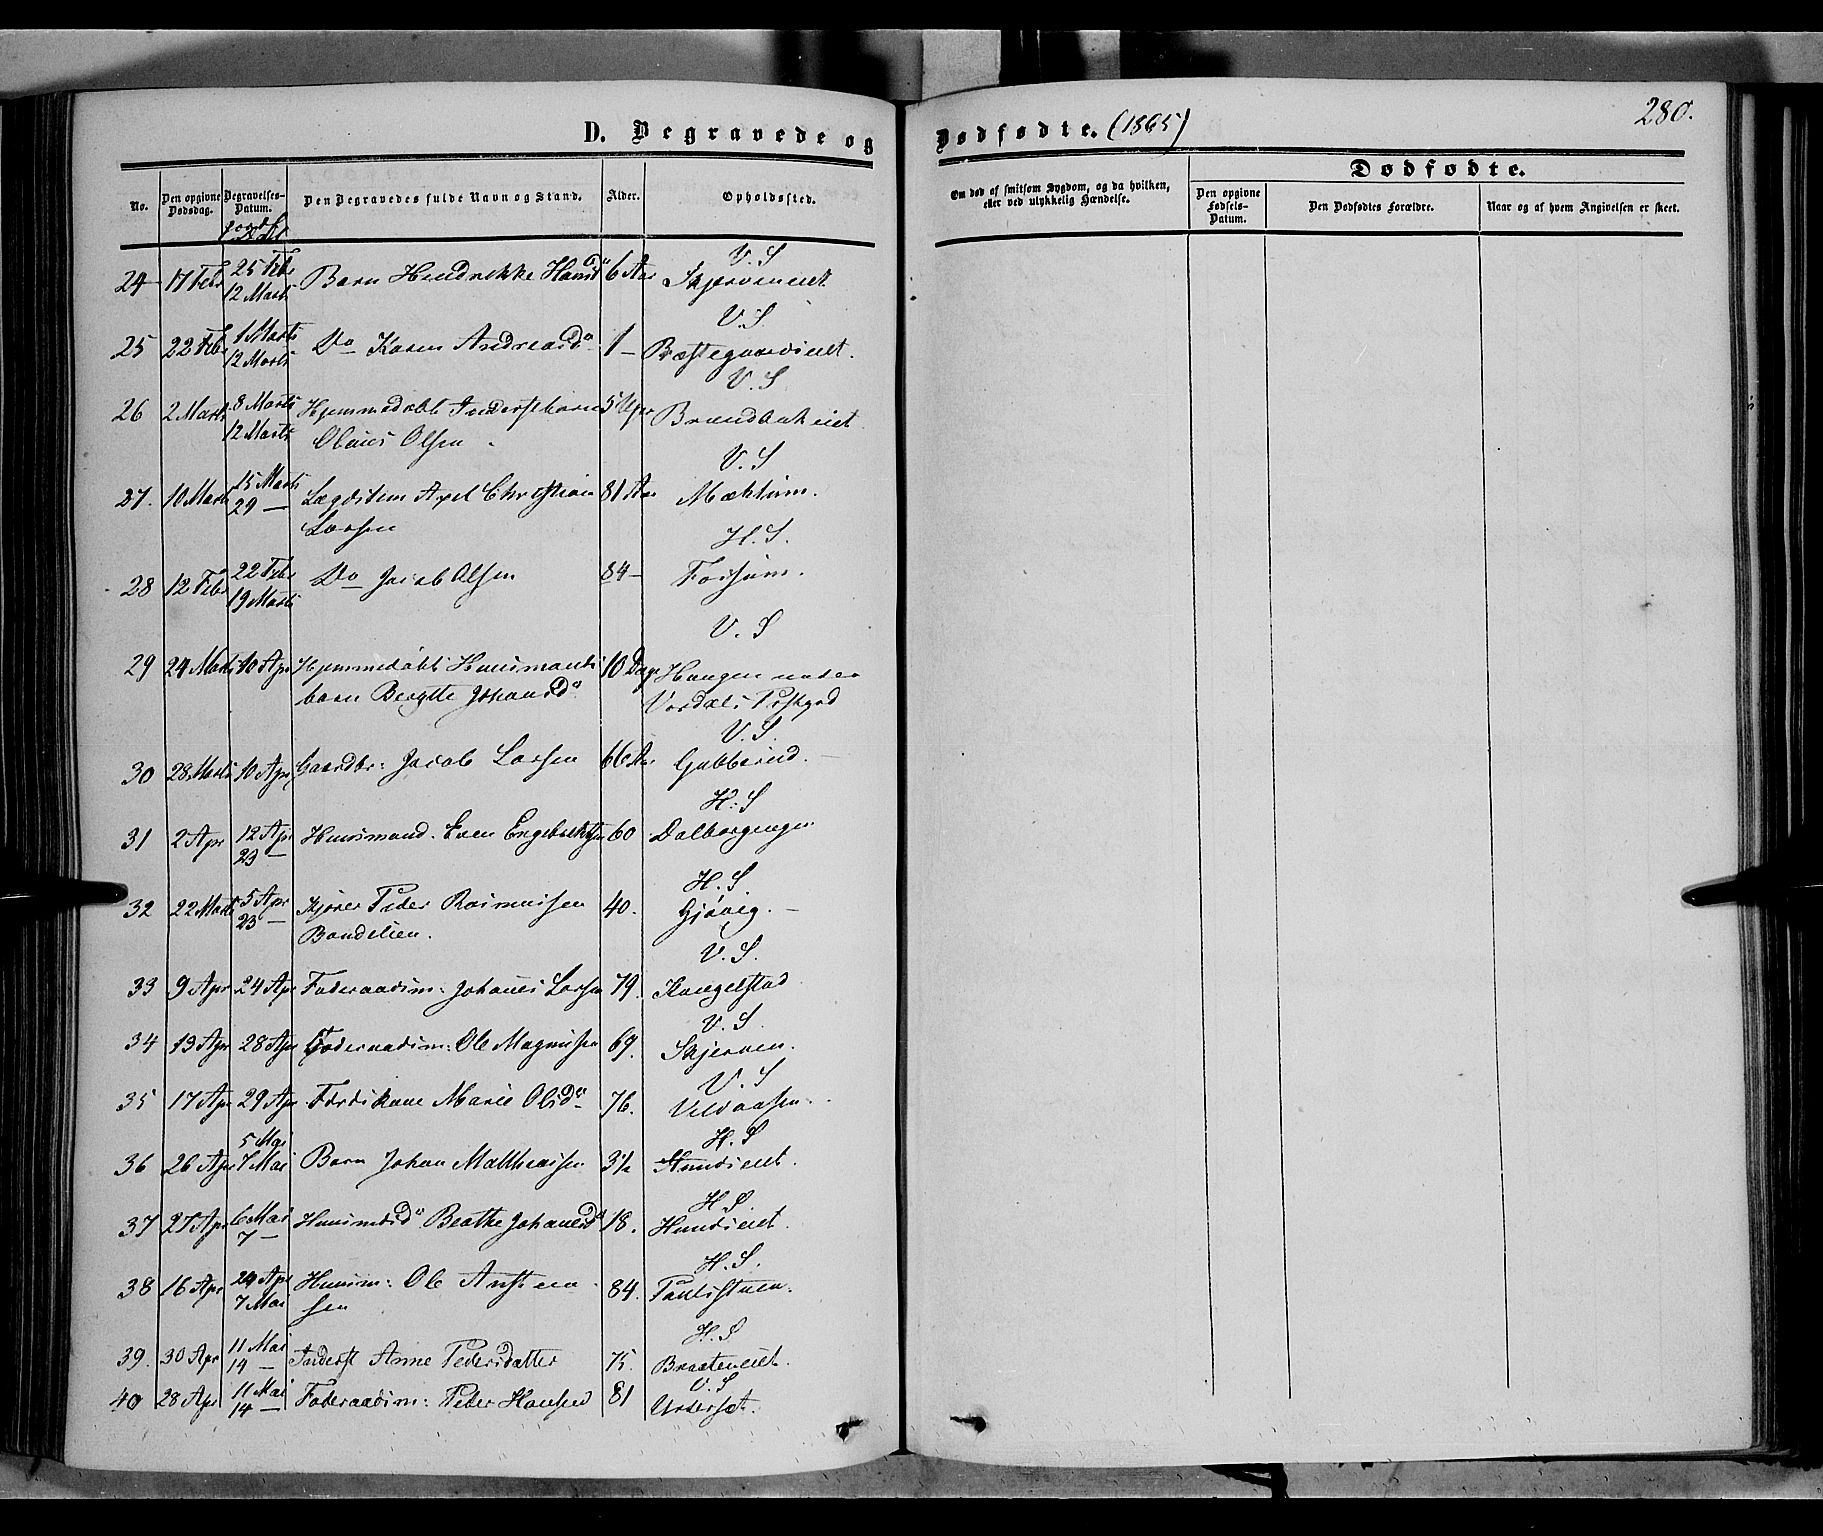 D. Begravede og
Dødfødte. (1865)
280.
No.
Den opgivne Dødsdag.
Begravelses-Datum.
Den Begravedes fulde Navn og Stand.
Alder.
Opholdssted.
Om død af smitsom Sygdom, og da hvilken, eller ved ulykkelig Hændelse.
Dødfødte.
Den opgivne Fødsels-Datum.
Den Dødfødtes Forældre.
Naar og af hvem Angivelsen er skeet.
V. S
24 17 Febr 25 Febr 12 Marts Barn Hendrikke Hansd 6 Aar Skjerveneiet
V. S.
25 22 Febr 1 Marts 12 Marts Do Karen Andreasd 1 — Præstegaardseiet.
V. S
26 2 Marts 8 Marts 12 Marts Hjemmedøbt Inderstbarn 5 Uger
Olaus Olsen
V. S
27. 10 Marts 15 Marts 29 — Lægdslem Axel Christian 81 Aar Mæhlum.
Larsen
H. S.
28 12 Febr 22 Febr 19 Marts Do Jacob Olsen 84 — Forsum.
V. S
29 24 Marts 10 Apr Hjemmedøbt Huusmands 10 Dage Haugen under
barn Bergitte Johansd
V. S.
30 28 Marts 10 Apr Gaardbr: Jacob Larsen 66 Aar
H. S
31 2 Apr 12 Apr 23 — Huusmand. Even Engebrethsen 60 Dalborgengen
H. S.
32 22 Marts 5 Apr 23 — Peder Rasmussen 40. Gjøvig. —
Bondelien.
V. S.
33 9 Apr 24 Apr Føderaadsm: Johanes Larsen 79.
V. S.
34 13 Apr 28 Apr Føderaadsm: Ole Magnussen 69. Skjerven.
V. S
35 17 Apr 29 Apr Fdrdskone Marie Olsd 76.
H. S
36 26 Apr 5 Mai 7 Mai Barn Johan Matthiassen 3½ Hundseiet.
H. S
37 27 Apr 6 Mai 7 — Huusmdsd Beathe Johanesd 18. Hundseiet.
H. S.
38 16 Apr 24 Apr 7 Mai Huusm: Ole Ansten- 84. Paulsstuen.
sen
H. S
39. 30 Apr 11 Mai 14 — Inderst Anne Pedersdatter 75. Braateneiet.
V. S
40 28 Apr 11 Mai 14 — Føderaadsm: Peder Hansen 81 Underset.